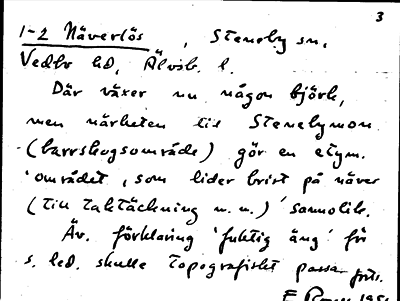 3
1-2 Näverlös, Steneby sn,
Vedbo hd, Älvsb. l.
Där växer nu någon björk,
men närheten till Stenebymon
(barrskogsområde) gör en etym.
'området, som lider brist på näver
(till taktäckning m. m.)' sannolik.
Äv. förklaring 'fuktig äng' för
s. led. skulle topografiskt passa